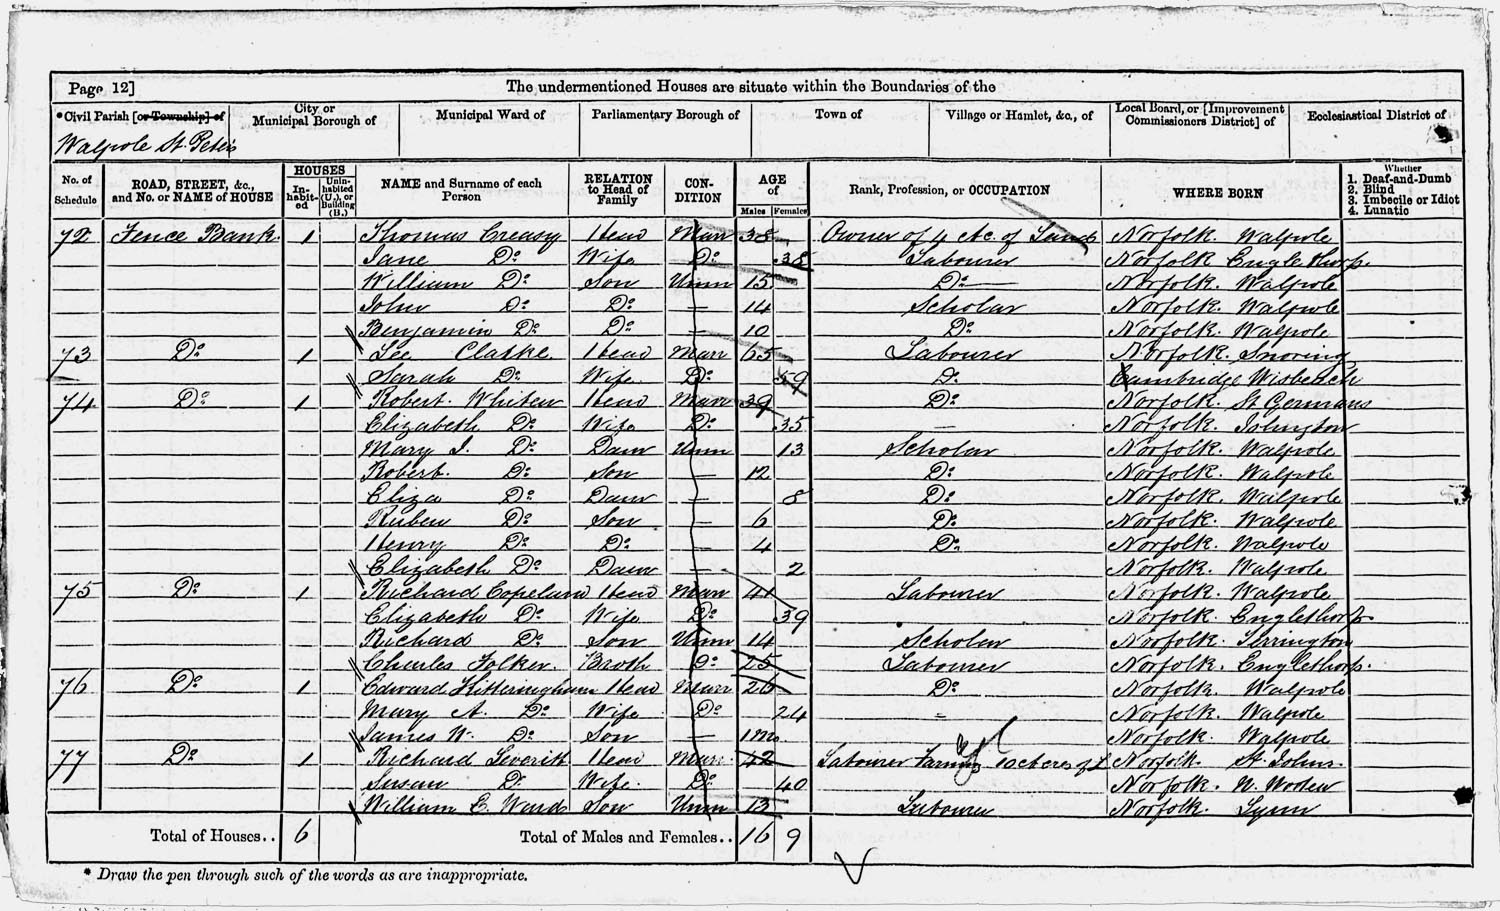 Page 12] The undermentioned Houses are situate within the Boundaries of the
*Civil Parish [or Township] of City or Municipal Borough of Municipal Ward of Parliamentary Borough of Town of Village or Hamlet, &c., of Local Board, or [Improvement Commissioners District] of Ecclesiastical District of
Walpole St. Peters
No. of Schedule ROAD, STREET, &c., and No. or NAME of HOUSE HOUSES Inhabited Uninhabited (U.), or Building (B.) NAME and Surname of each Person RELATION to Head of Family CONDITION AGE of Males Females Rank, Profession, or OCCUPATION WHERE BORN Whether 1. Deaf-and-Dumb 2. Blind 3. Imbecile or Idiot 4. Lunatic
72 Fence Bank. 1 Thomas Creasy Head Marr 38 Owner of 4 Ac. of Land Norfolk. Walpole
Jane Do Wife Do 38 Labourer Norfolk Englethorp.
William Do Son Unm 15 Do Norfolk. Walpole
John Do Do — 14 Scholar Norfolk. Walpole
Benjamin Do Do — 10 Do Norfolk. Walpole
73 Do 1 Lee Clarke. Head Marr 65 Labourer Norfolk. Snoring
Sarah Do Wife Do 59 Do Cambridge Wisbeach
74 Do 1 Robert. Whiten Head Marr 39 Do Norfolk. St Germans
Elizabeth Do Wife Do 35 — Norfolk. Islington
Mary J. Do Daur Unm 13 Scholar Norfolk. Walpole
Robert. Do Son — 12 Do Norfolk. Walpole
Eliza Do Daur — 8 Do Norfolk. Walpole
Ruben Do Son — 6 Do Norfolk. Walpole
Henry Do Do — 4 Do Norfolk. Walpole
Elizabeth Do Daur — 2 Norfolk. Walpole
75 Do 1 Richard Copeland Head Marr 41 Labourer Norfolk. Walpole
Elizabeth Do Wife Do 39 Norfolk. Englethorp.
Richard Do Son Unm 14 Scholar Norfolk. Terrington
Charles Folker. Broth Do 25 Labourer Norfolk. Englethorp.
76 Do 1 Edward Kitteringham Head Marr 26 Do Norfolk. Walpole
Mary A. Do Wife Do 24 Norfolk. Walpole
James W. Do Son — 1m Norfolk. Walpole
77 Do 1 Richard Leveritt Head Marr. 42 Labourer Farming 10 acres of L Norfolk. St. Johns.
Susan D. Wife. Do 40 Norfolk.
William E. Ward Son Unm 13 Labourer Norfolk. Lynn
Total of Houses.. 6 Total of Males and Females.. 16 9
* Draw the pen through such of the words as are inappropriate.